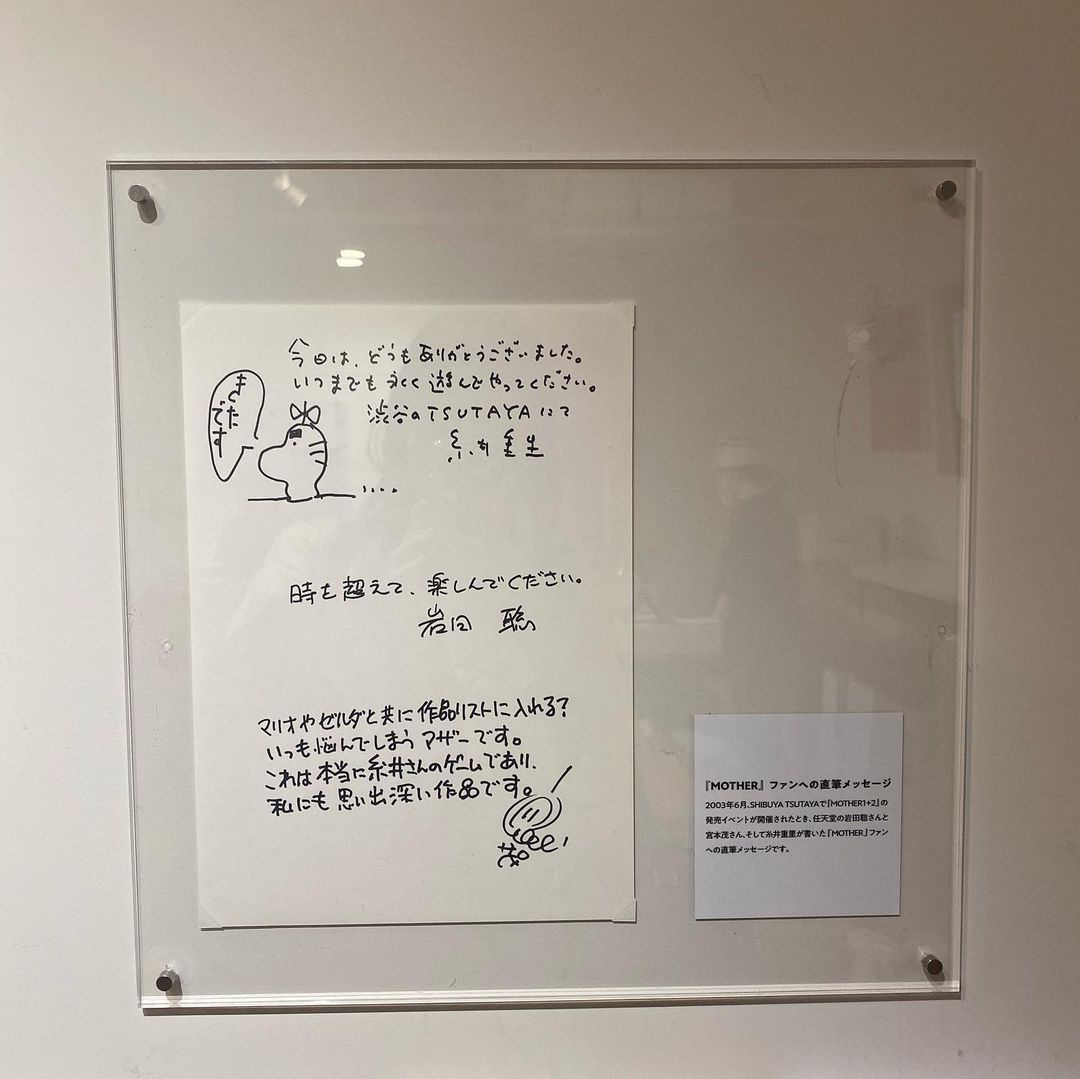 今日は、どうもありがとうございました。
いつまでも永く遊んでやってください。
渋谷のTSUTAYAにて
糸井重里
きたです
時を超えて、楽しんでください。
岩田 聡
マリオやゼルダと共に作品リストに入れる?
いつも悩んでしまうマザーです。
これは本当に糸井さんのゲームであり、
私にも思い出深い作品です。
茂
『MOTHER』ファンへの直筆メッセージ
2003年6月、SHIBUYA TSUTAYAで『MOTHER1+2』の
発売イベントが開催されたとき、任天堂の岩田聡さんと
宮本茂さん、そして糸井重里が書いた『MOTHER』ファン
への直筆メッセージです。